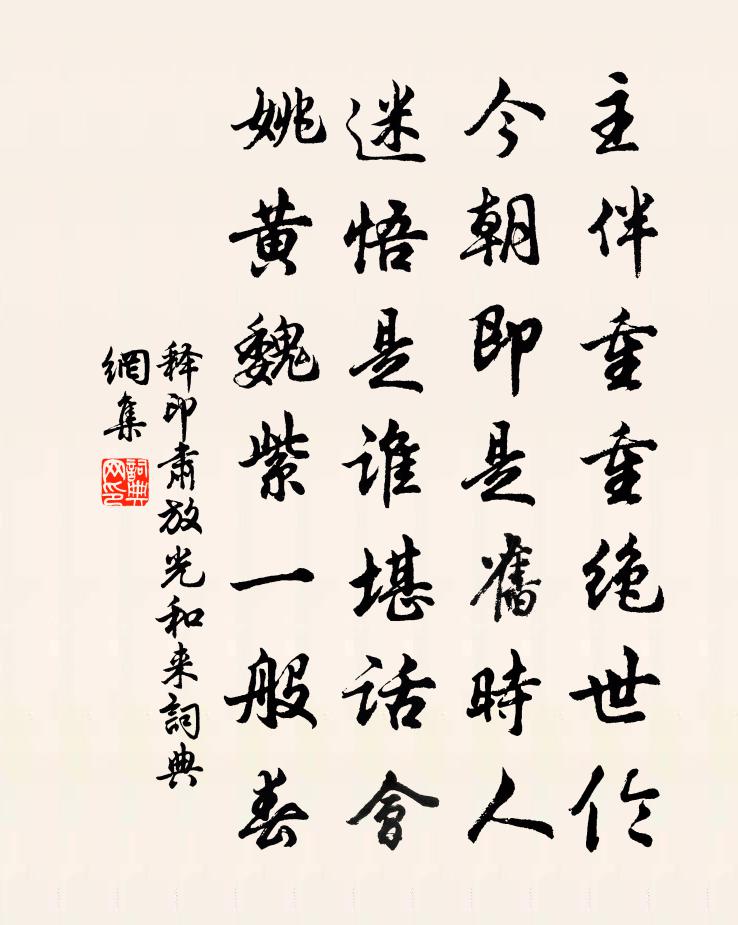 主伴重重绝世伦
今朝即是舊時人
迷悟是谁堪话會
姚黄魏紫一般春
释印肃放光和来詞典
網集
詞典网印